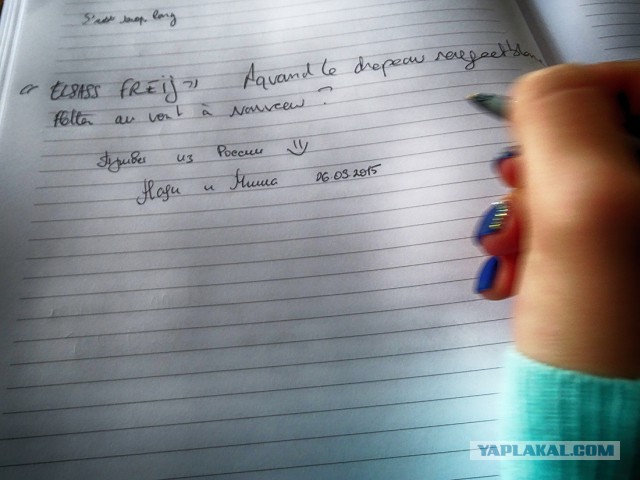 S'est trop long
« ELSASS FREIJ » A quand le drapeau rouge et blanc
flotter au vent à nouveau ?
Привет из России
Надя и Миша 26.03.2015
YAPLAKAL.COM